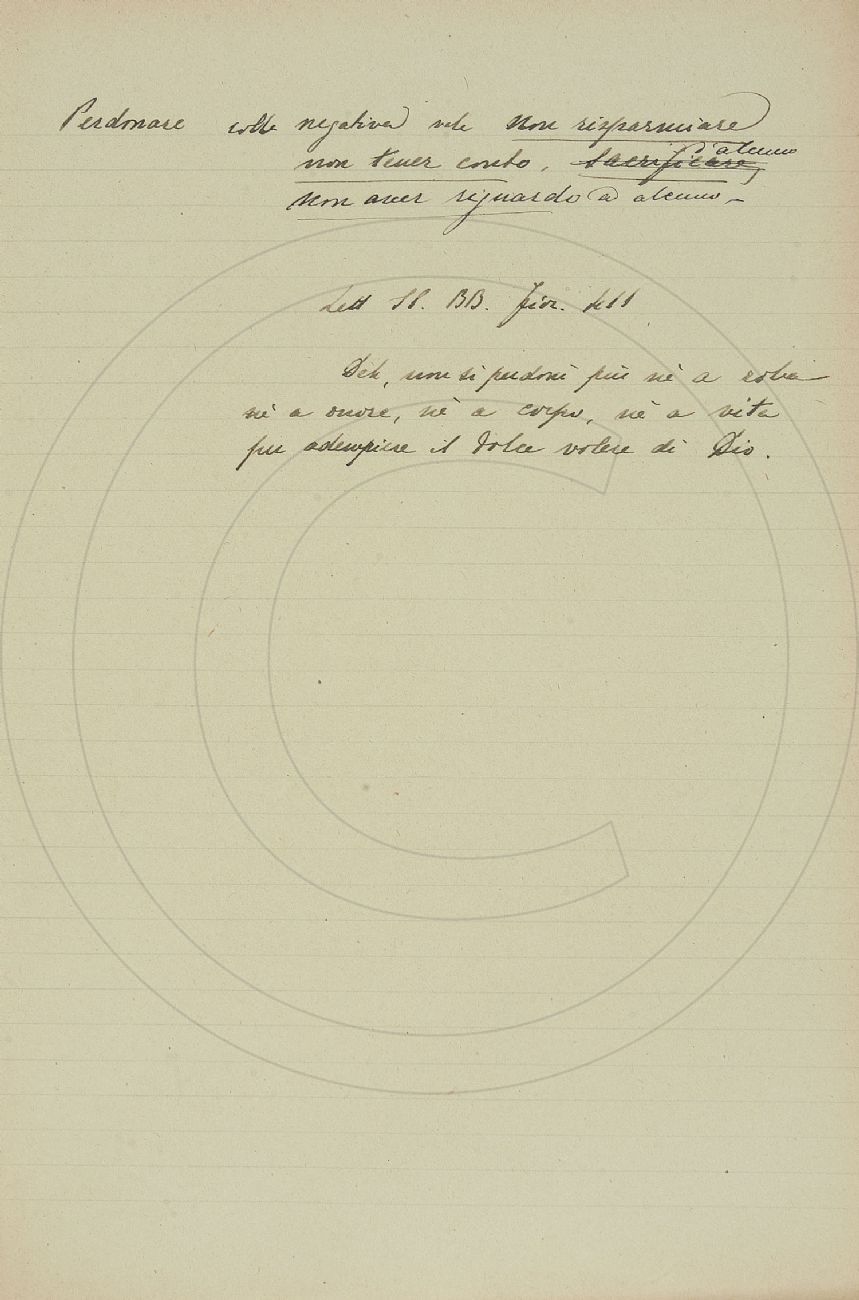 Perdonare colla negativa vale non risparmiare
non tener conto, sacrificare, d'alcuno
non aver riguardo a alcuno.
Lett SS. BB. Fior.
Deh, non si perdoni più nè a roba
nè a onore, nè a corpo, nè a vita
per adempiere il dolce volere di Dio.